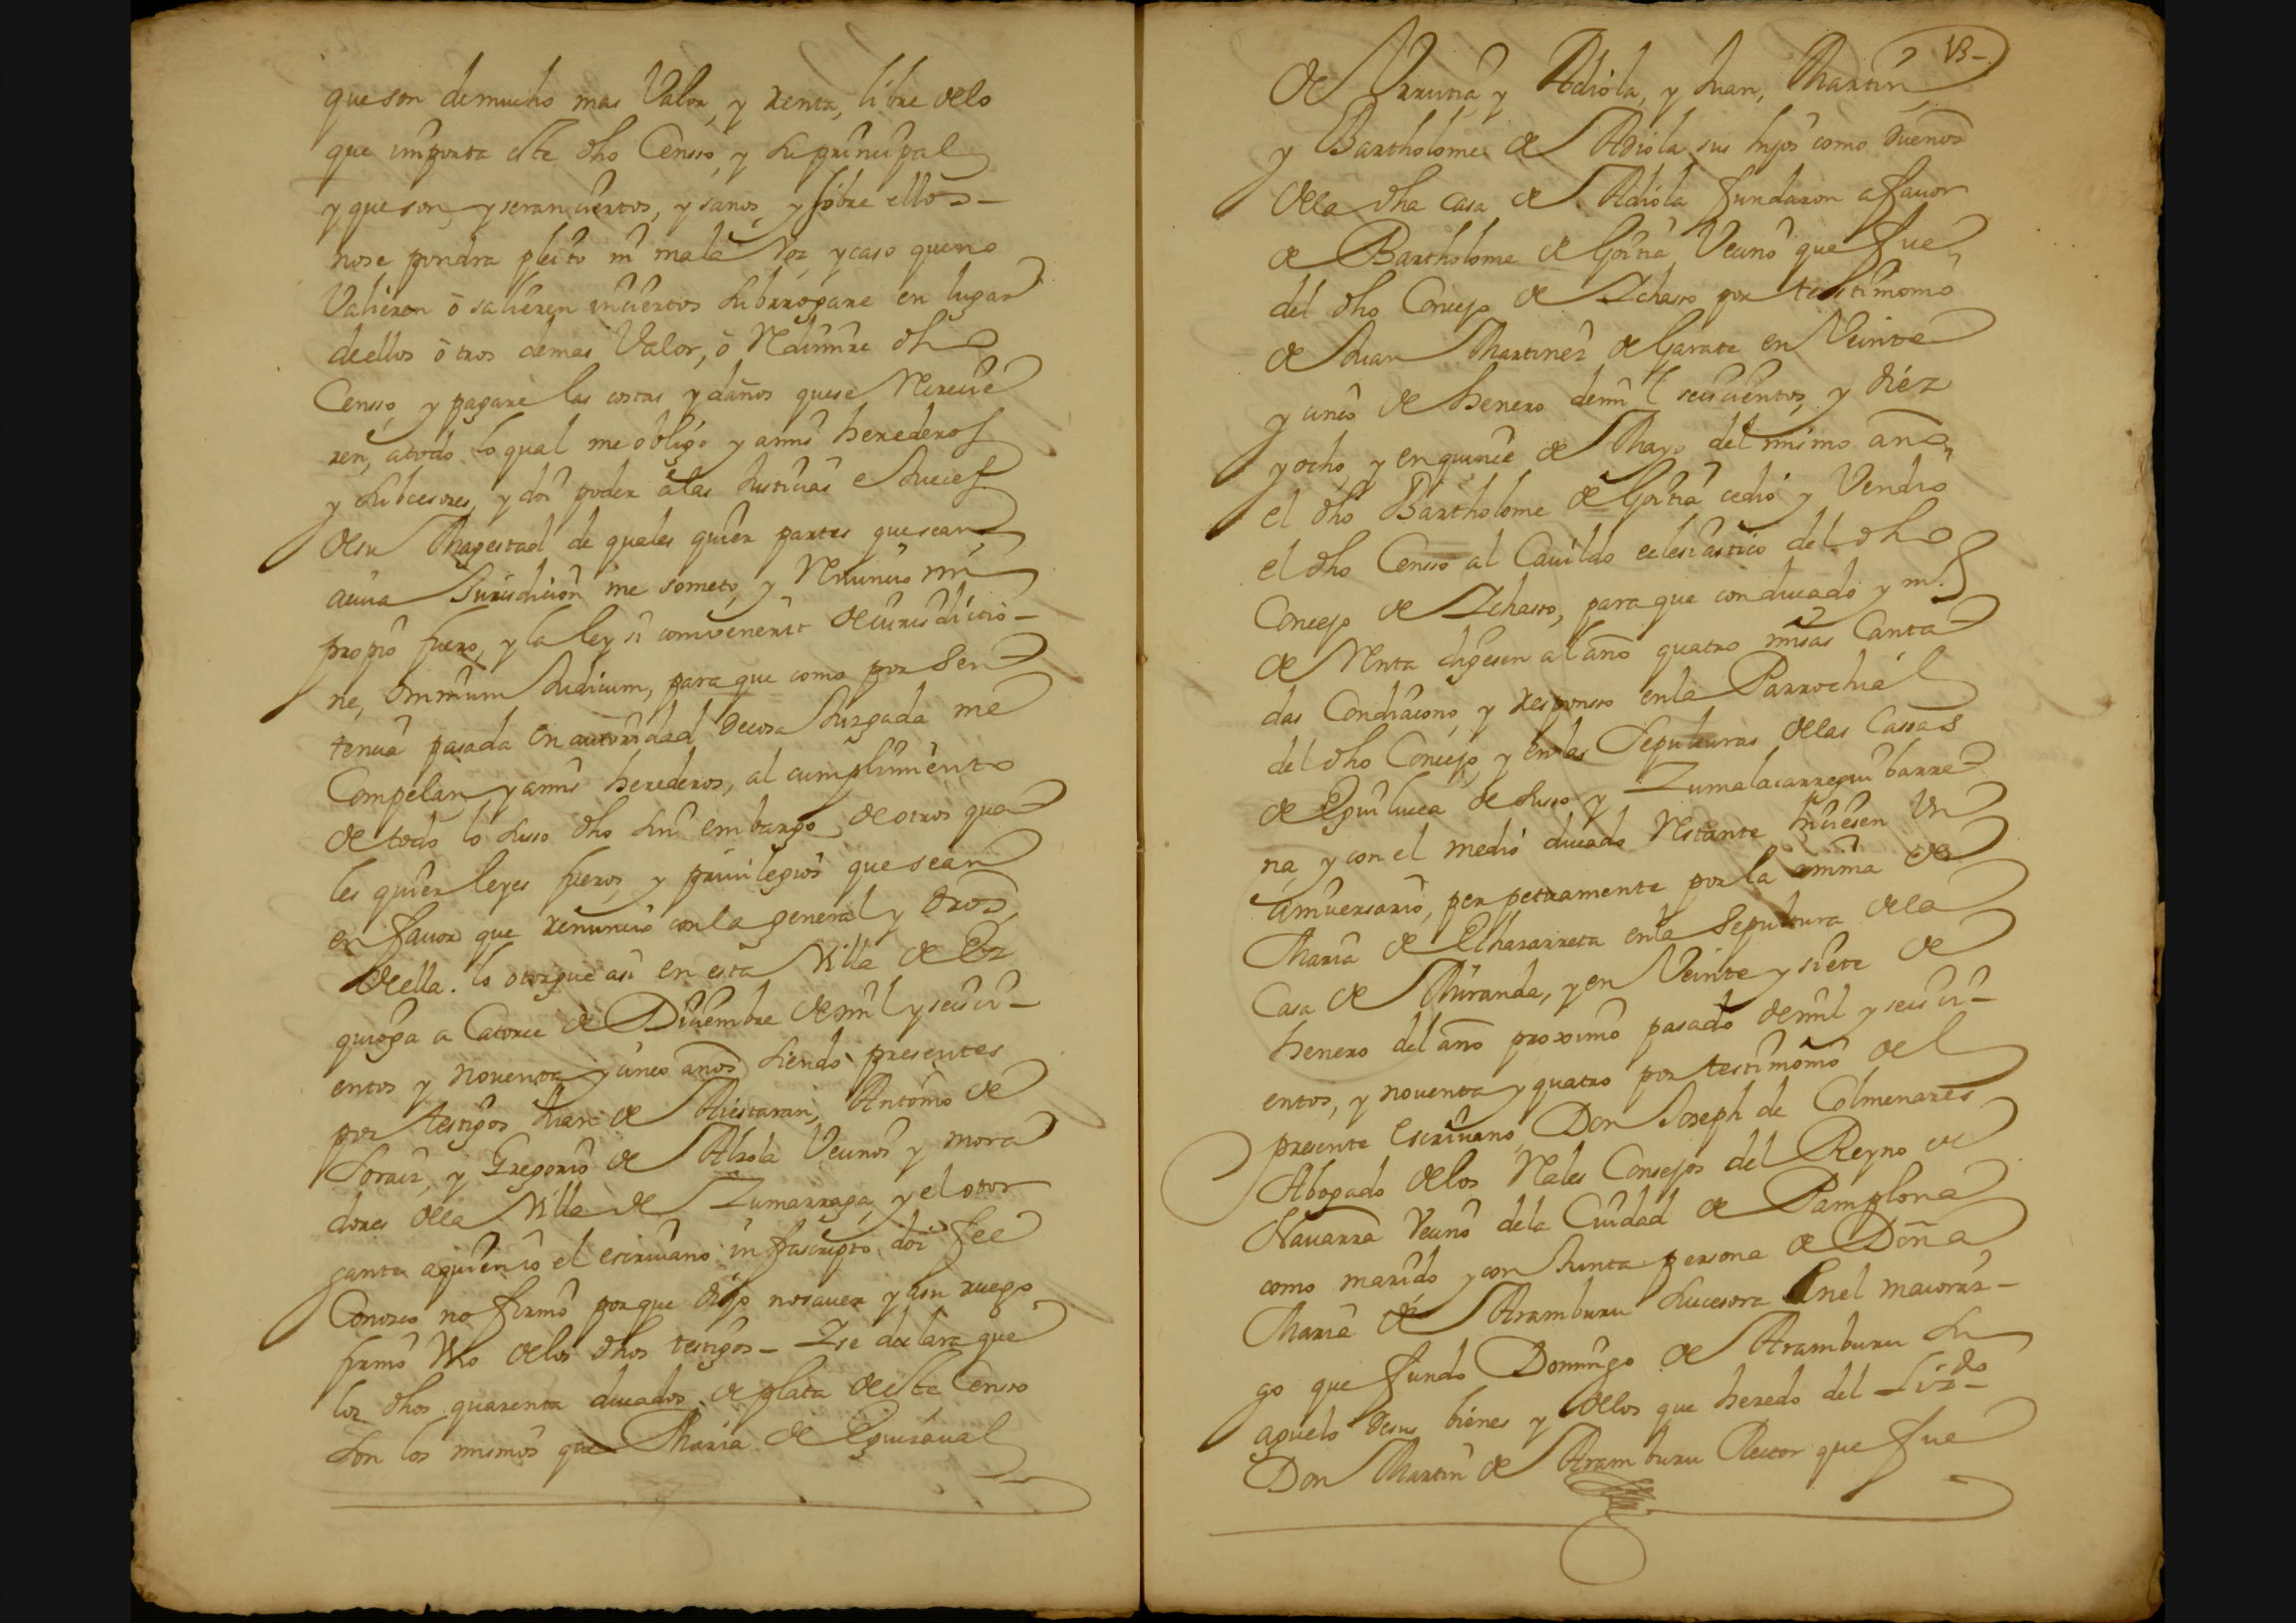 que son de mucho mas Valor, y renta, libre delo
que importa este dho Censso, y su prinçipal
y que son, y seran çiertos, y sanos, y sobre ellos
nose pondra pleito ni mala Voz, y caso que no
Valieren ô salieren inçiertos subrrogare en lugar
de ellos ôtros demas Valor, ô Redimire dho
Censso, y pagare las costas y daños quese Recreçie
ren, atodo lo qual me obligo y amis herederos
y subcesores, y doi poder âlas Justiçias e Jueçes
desu Magestad de quales quier partes que sean
acuia Jurisdiçion me someto, y Renunçio mi
propio fuero, y la ley si convenerit de iurisdictio-
ne, omnium Judicum, para que como por Sen
tençia pasada en autoridad decosa Juzgada me
Compelan, y amis herederos, al cumplimiento
de todo lo susso dho sin embargo de otros qua
les quier leyes fueros, y priuilegios que sean
en fauor que renunçio con la general y dros
della. lo otorgue asi en esta Villa de Ez
quioga a Catorçe de Diçiembre de mil y seisçi-
entos y nouenta y cinco años siendo presentes
por testigos Juan de Aiestaran, Antonio de
Soraiz, y Gregorio de Alzola Veçinos y mora
dores dela Villa de Zumarraga, y el otor
gante aquien io el escriuano infrascripto doi fee
Conozco no firmô porque dijo nosauer y asu ruego
firmô Vno delos dhos testigos - Ise declara que
los dhos quarenta ducados de plata deeste Censso
son los mismos que Maria de Eguizaual
VB-
De Vrruna y Adiola, y Juan, Martin
y Bartholome de Adiola sus hijos como dueños
dela dha casa de Adiola fundaron afauor
de Bartholome de Goitia Veçino que fue
del dho Conçejo de Ichasso por testimonio
de Juan Martinez de Garate en Veinte
y cinco de henero de mil seisçientos y diez
y ocho, y en quinçe de Mayo del mismo año
el dho Bartholome de Goitia cedio y Vendio
el dho Censso al Cauildo eclesiastico del dho
Conçejo de Ichasso, para que con ducado y m.o
de Renta dijesen al año quatro misas Canta
das Condiácono, y responsso enla Parrochial
del dho Conçejo, y enlas Sepulturas delas Cassas
de Eguiluçea de susso y Zumalacarregui barre
na, y con el medio ducado Restante hiçiesen Un
aniuersario, perpetuamente por la anima de
Maria de Echazarreta enla Sepultura dela
Casa de Miranda, y en Veinte y siete de
henero del año proximo pasado de mil y seisçi-
entos, y nouenta y quatro por testimonio del
presente escriuano, Don Joseph de Colmenares
Abogado delos Reales Consejos del Reyno de
Nauarra Veçino dela Ciudad de Pamplona
como marido y con Junta persona de Doña
Maria de Aramburu suçesora enel maioraz-
go que fundo Domingo de Aramburu su
aguelo desus bienes y delos que heredo del Lizdo
Don Martin de Aramburu Rector que fue